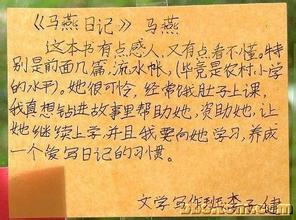 《马燕日记》 马燕
这本书有点感人,又有点看不懂。特
别是前面几篇,流水帐,(毕竟是农村小学
的水平)。她很可怜,经常饿肚子上课,
我真想钻进故事里帮助她,资助她,让
她继续上学,并且我要向她学习,养成
一个爱写日记的习惯。
文学写作班:李子健